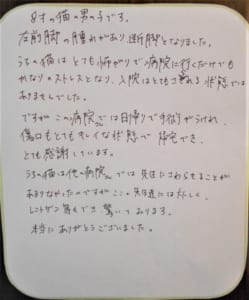 8才の猫の男の子です。
左前脚の腫れがあり、断脚となりました。
うちの猫はとても怖がりで病院に行くだけでも
かなりのストレスとなり、入院はとてもできる状態では
ありませんでした。
ですがこの病院では日帰りで手術がうけれ、
傷口もとてもキレイな状態で帰宅でき、
とても感謝しています。
うちの猫は他の病院では先生にさわらせることが
ありなかったのですがここの先生達には大人しく、
レントゲン等もでき驚いております。
本当にありがとうございました。